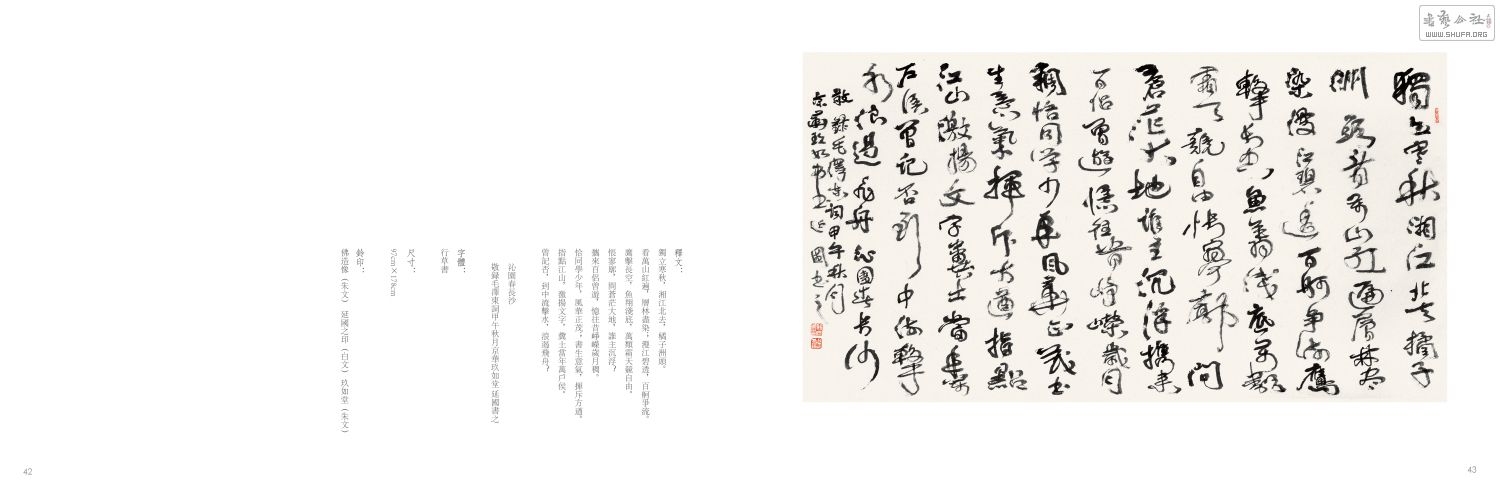 釋文：
獨立寒秋，湘江北去，橘子洲頭。
看萬山紅遍，層林盡染，漫江碧透，百舸爭流。
鷹擊長空，魚翔淺底，萬類霜天競自由。
悵寥廓，問蒼茫大地，誰主沉浮？
攜來百侶曾遊，憶往昔崢嶸歲月稠。
恰同學少年，風華正茂，書生意氣，揮斥方遒。
指點江山，激揚文字，糞土當年萬戶侯。
曾記否，到中流擊水，浪遏飛舟？
沁園春長沙
敬録毛澤東詞甲午秋月京華玖如堂延國書之
字體：
行草書
尺寸：
97cm×178cm
鈐印：
佛造像（朱文） 延國之印（白文） 玖如堂（朱文）
42
獨立寒秋湘江北去橘子
洲頭看萬山紅遍層林盡
染漫江碧透百舸爭流鷹
擊長空魚翔淺底萬類
霜天競自由悵寥廓問
蒼茫大地誰主沉浮攜來
百侶曾遊憶往昔崢嶸歲月
稠恰同學少年風華正茂書
生意氣揮斥方遒指點
江山激揚文字糞土當年萬
戶侯曾記否到中流擊
水浪遏飛舟沁園春長沙
敬録毛澤東詞甲午秋月
京華玖如堂延國書之
43
WWW.SHUFA.ORG